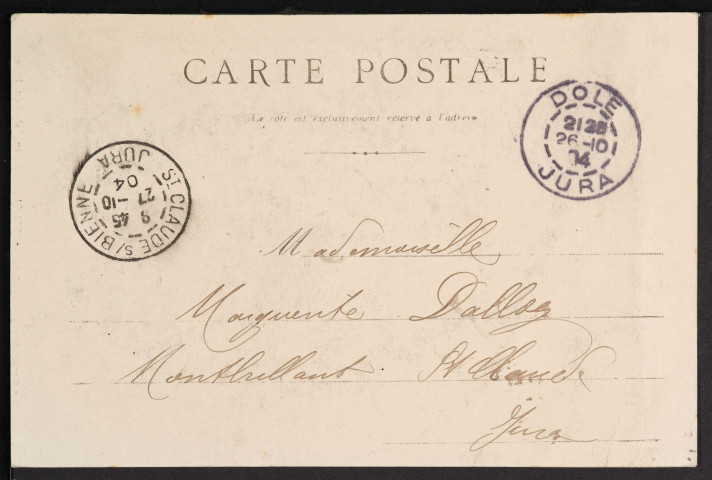 CARTE POSTALE
Ce côté est exclusivement réservé à l'adresse
DOLE
21 25
26-10
04
JURA
ST CLAUDE S/BIENNE
9 45
27 -10
04
JURA
Mademoiselle
Marguerite Dalloz
Montbrillant St Claude
Jura